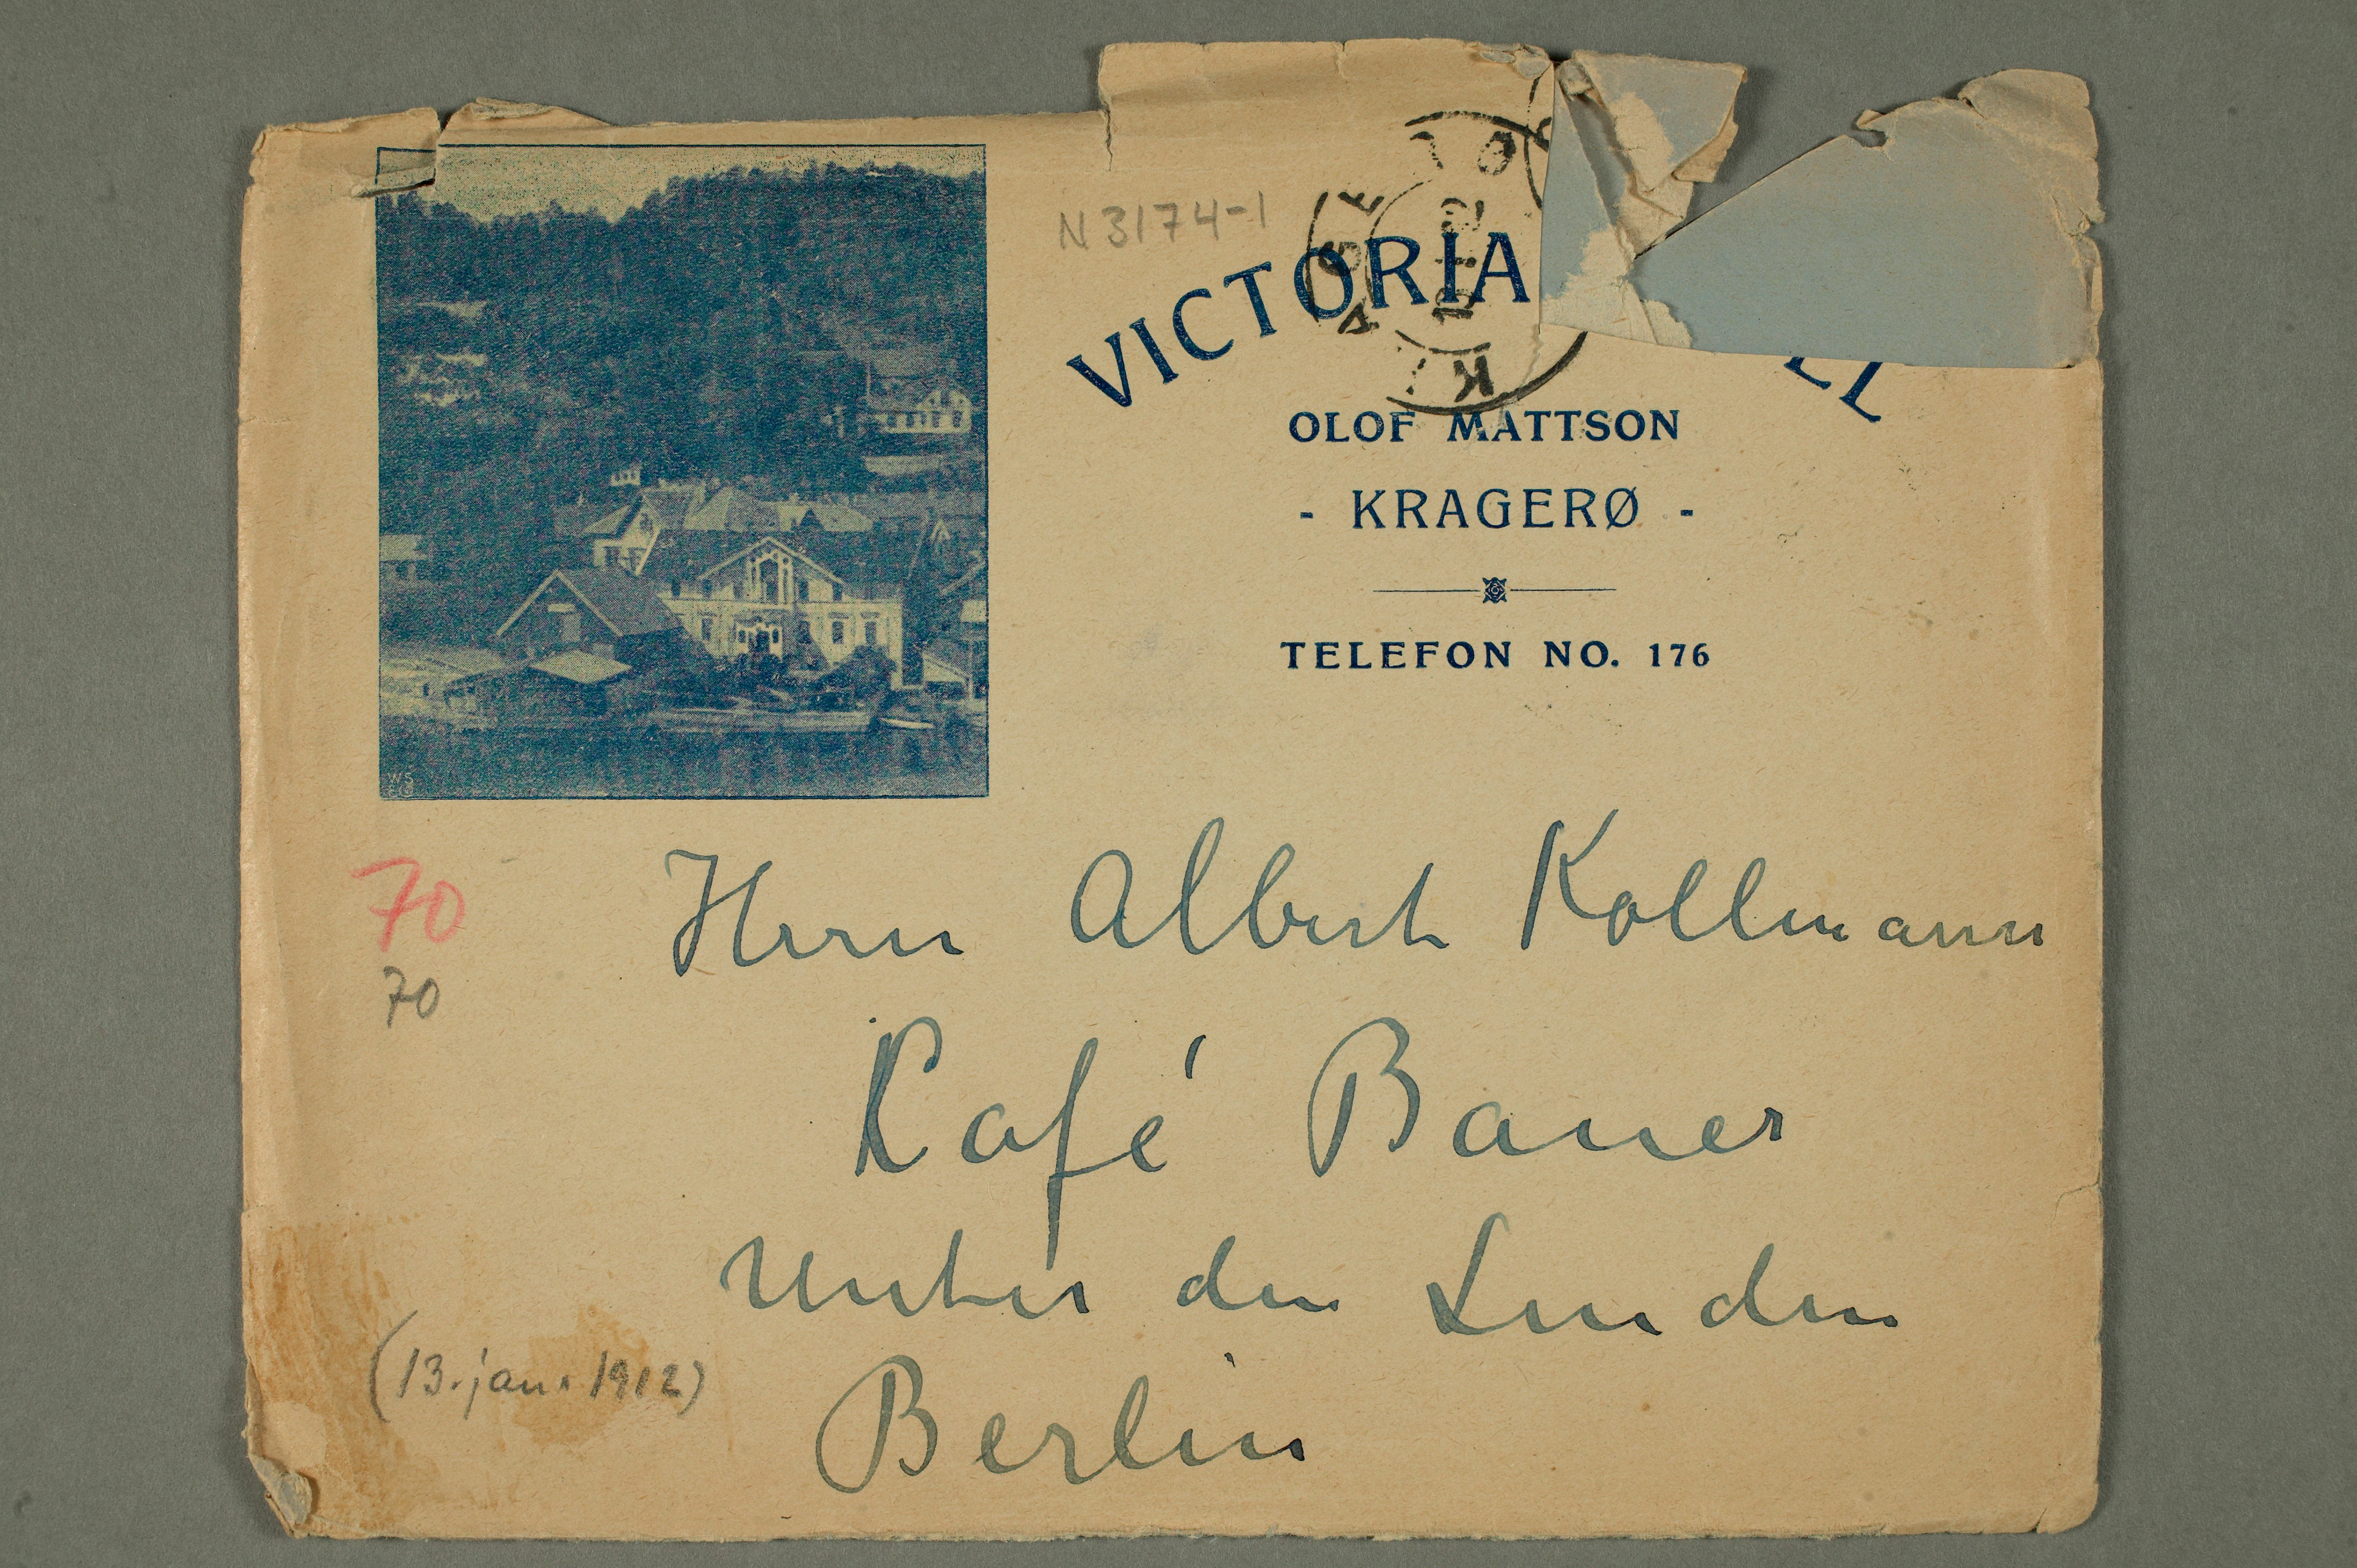 N 3174-1
VICTORIA
OLOF MATTSON
- KRAGERØ -
TELEFON NO. 176
70
70
Herrn Albert Kollmann
Café Bauer
Unter den Linden
Berlin
(13. jan. 1912)